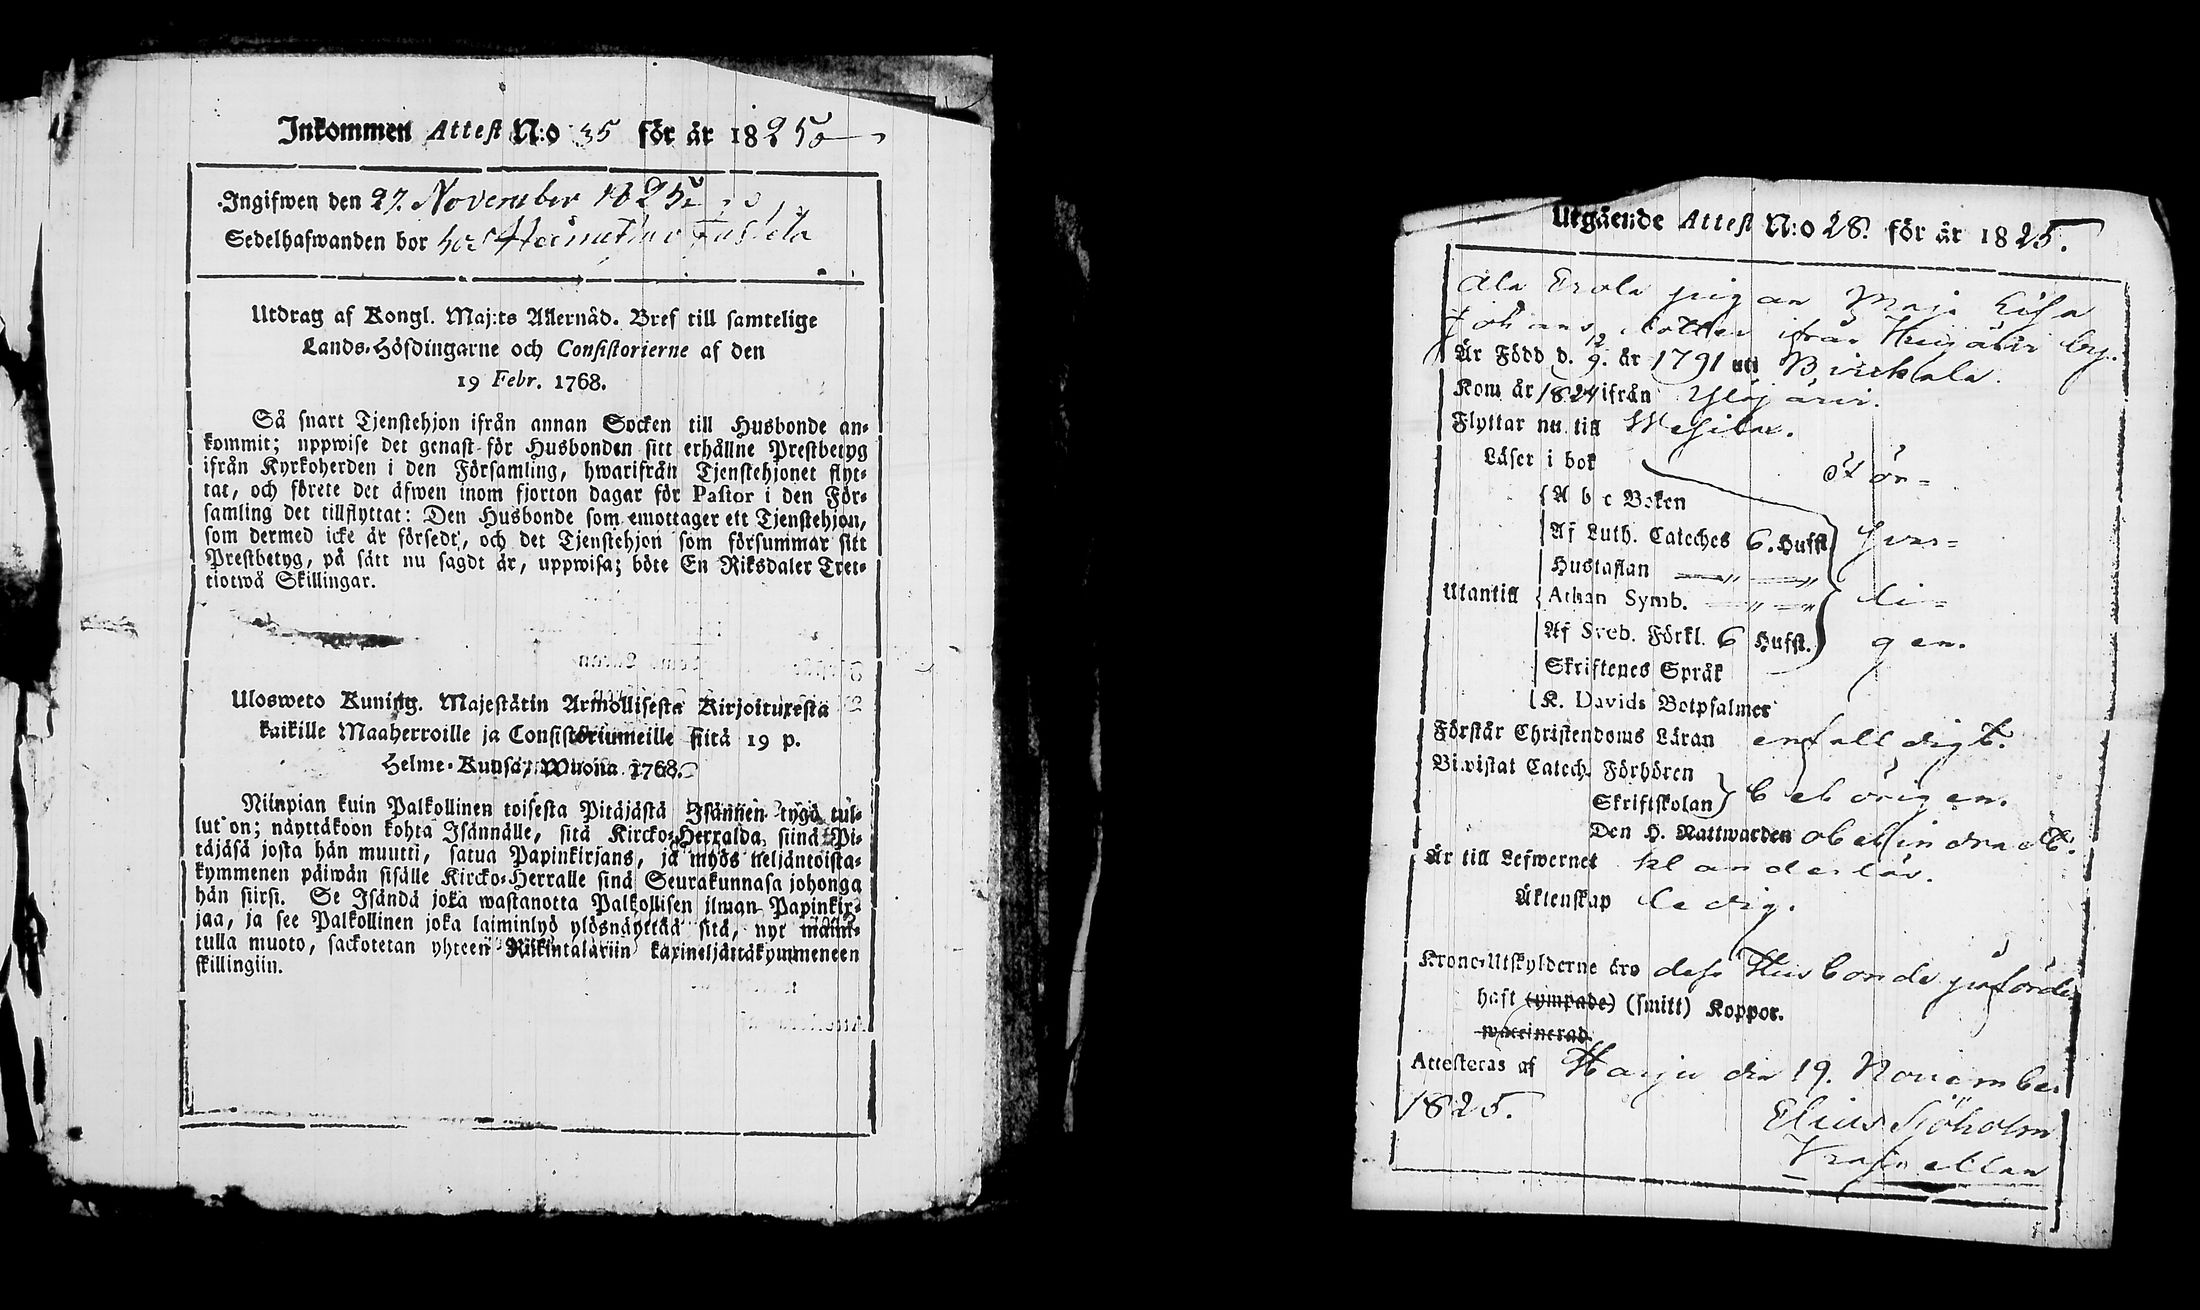 Inkommen Attest N:o 35 för år 1825
Ingifwen den 27. November 1825
Sedelhafwanden bor hos
Utdrag af Kongl. Maj:ts Allernåd. Bref till samtelige
Lands-Höfdingarne och Consistorierne af den
19 Febr. 1768.
Så snart Tjenstehjon ifrån annan Socken till Husbonde an-
kommit; uppwise det genast för Husbonden sitt erhållne Prestbetyg
ifrån Kyrkoherden i den Församling, hwarifrån Tjenstehjonet flyt-
tat, och förete det äfwen inom fjorton dagar för Pastor i den För-
samling det tillflyttat: Den Husbonde som emottager ett Tjenstehjon,
som dermed icke är försedt, och det Tjenstehjon som försummar sitt
Prestbetyg, på sätt nu sagdt är, uppwisa; böte En Riksdaler Tret-
tiotwå Skillingar.
Ulosweto Kuning. Majestätin Armollisesta Kirjoituxesta
kaikille Maaherroille ja Consistoriumeille siitä 19 p.
Helme-Kuusa, Wuona 1768.
Niinpian kuin Palkollinen toisesta Pitäjästä Isännen tygö tul-
lut on; näyttäkoon kohta Isännälle, sitä Kircko-Herralda, siinä Pi-
täjäsä josta hän muutti, satua Papinkirjans, ja myös neljäntoista-
kymmenen päiwän sisälle Kircko-Herralle sinä Seurakunnasa johonga
hän siirsi. Se Isändä joka wastanotta Palkollisen ilman Papinkir-
jaa, ja see Palkollinen joka laiminlyö ylösnäyttää sitä, nyt mainit-
tulla muoto, sackotetan yhteen Riikintalariin kaxineljättäkymmeneen
skillingiin.
Utgående Attest N:o 28. för år 1825.
Ala Erola pigan Maja Lisa
Johans dotter ifrån by.
Är Född d. 12/9. år 1791 uti Birckala.
Kom år 1824 ifrån Ylöjärvi.
Flyttar nu till Wesilax.
Läser i bok
A b c Boken
Af Luth. Cateches 6. Hufst.
Hustaflan
Utantill Athan Symb.
Af Sveb. Förkl. 6 Hufst.
Skriftenes Språk
K. Davids Botpsalmer
Stör-
ligen.
Förstår Christendoms Läran enfalldigt.
Biwistat Catech. Förhören
Skriftskolan behörigen.
Den H. Nattwarden obehindradt.
Är till Lefwernet klanderlös.
Äktenskap ledig.
Krono-Utskylderne äro dess Husbonde påförde
haft (ympade) (smitt) Koppor.
waccinerad.
Attesteras af Harju den 19. November
1825.
Elias Sjöholm